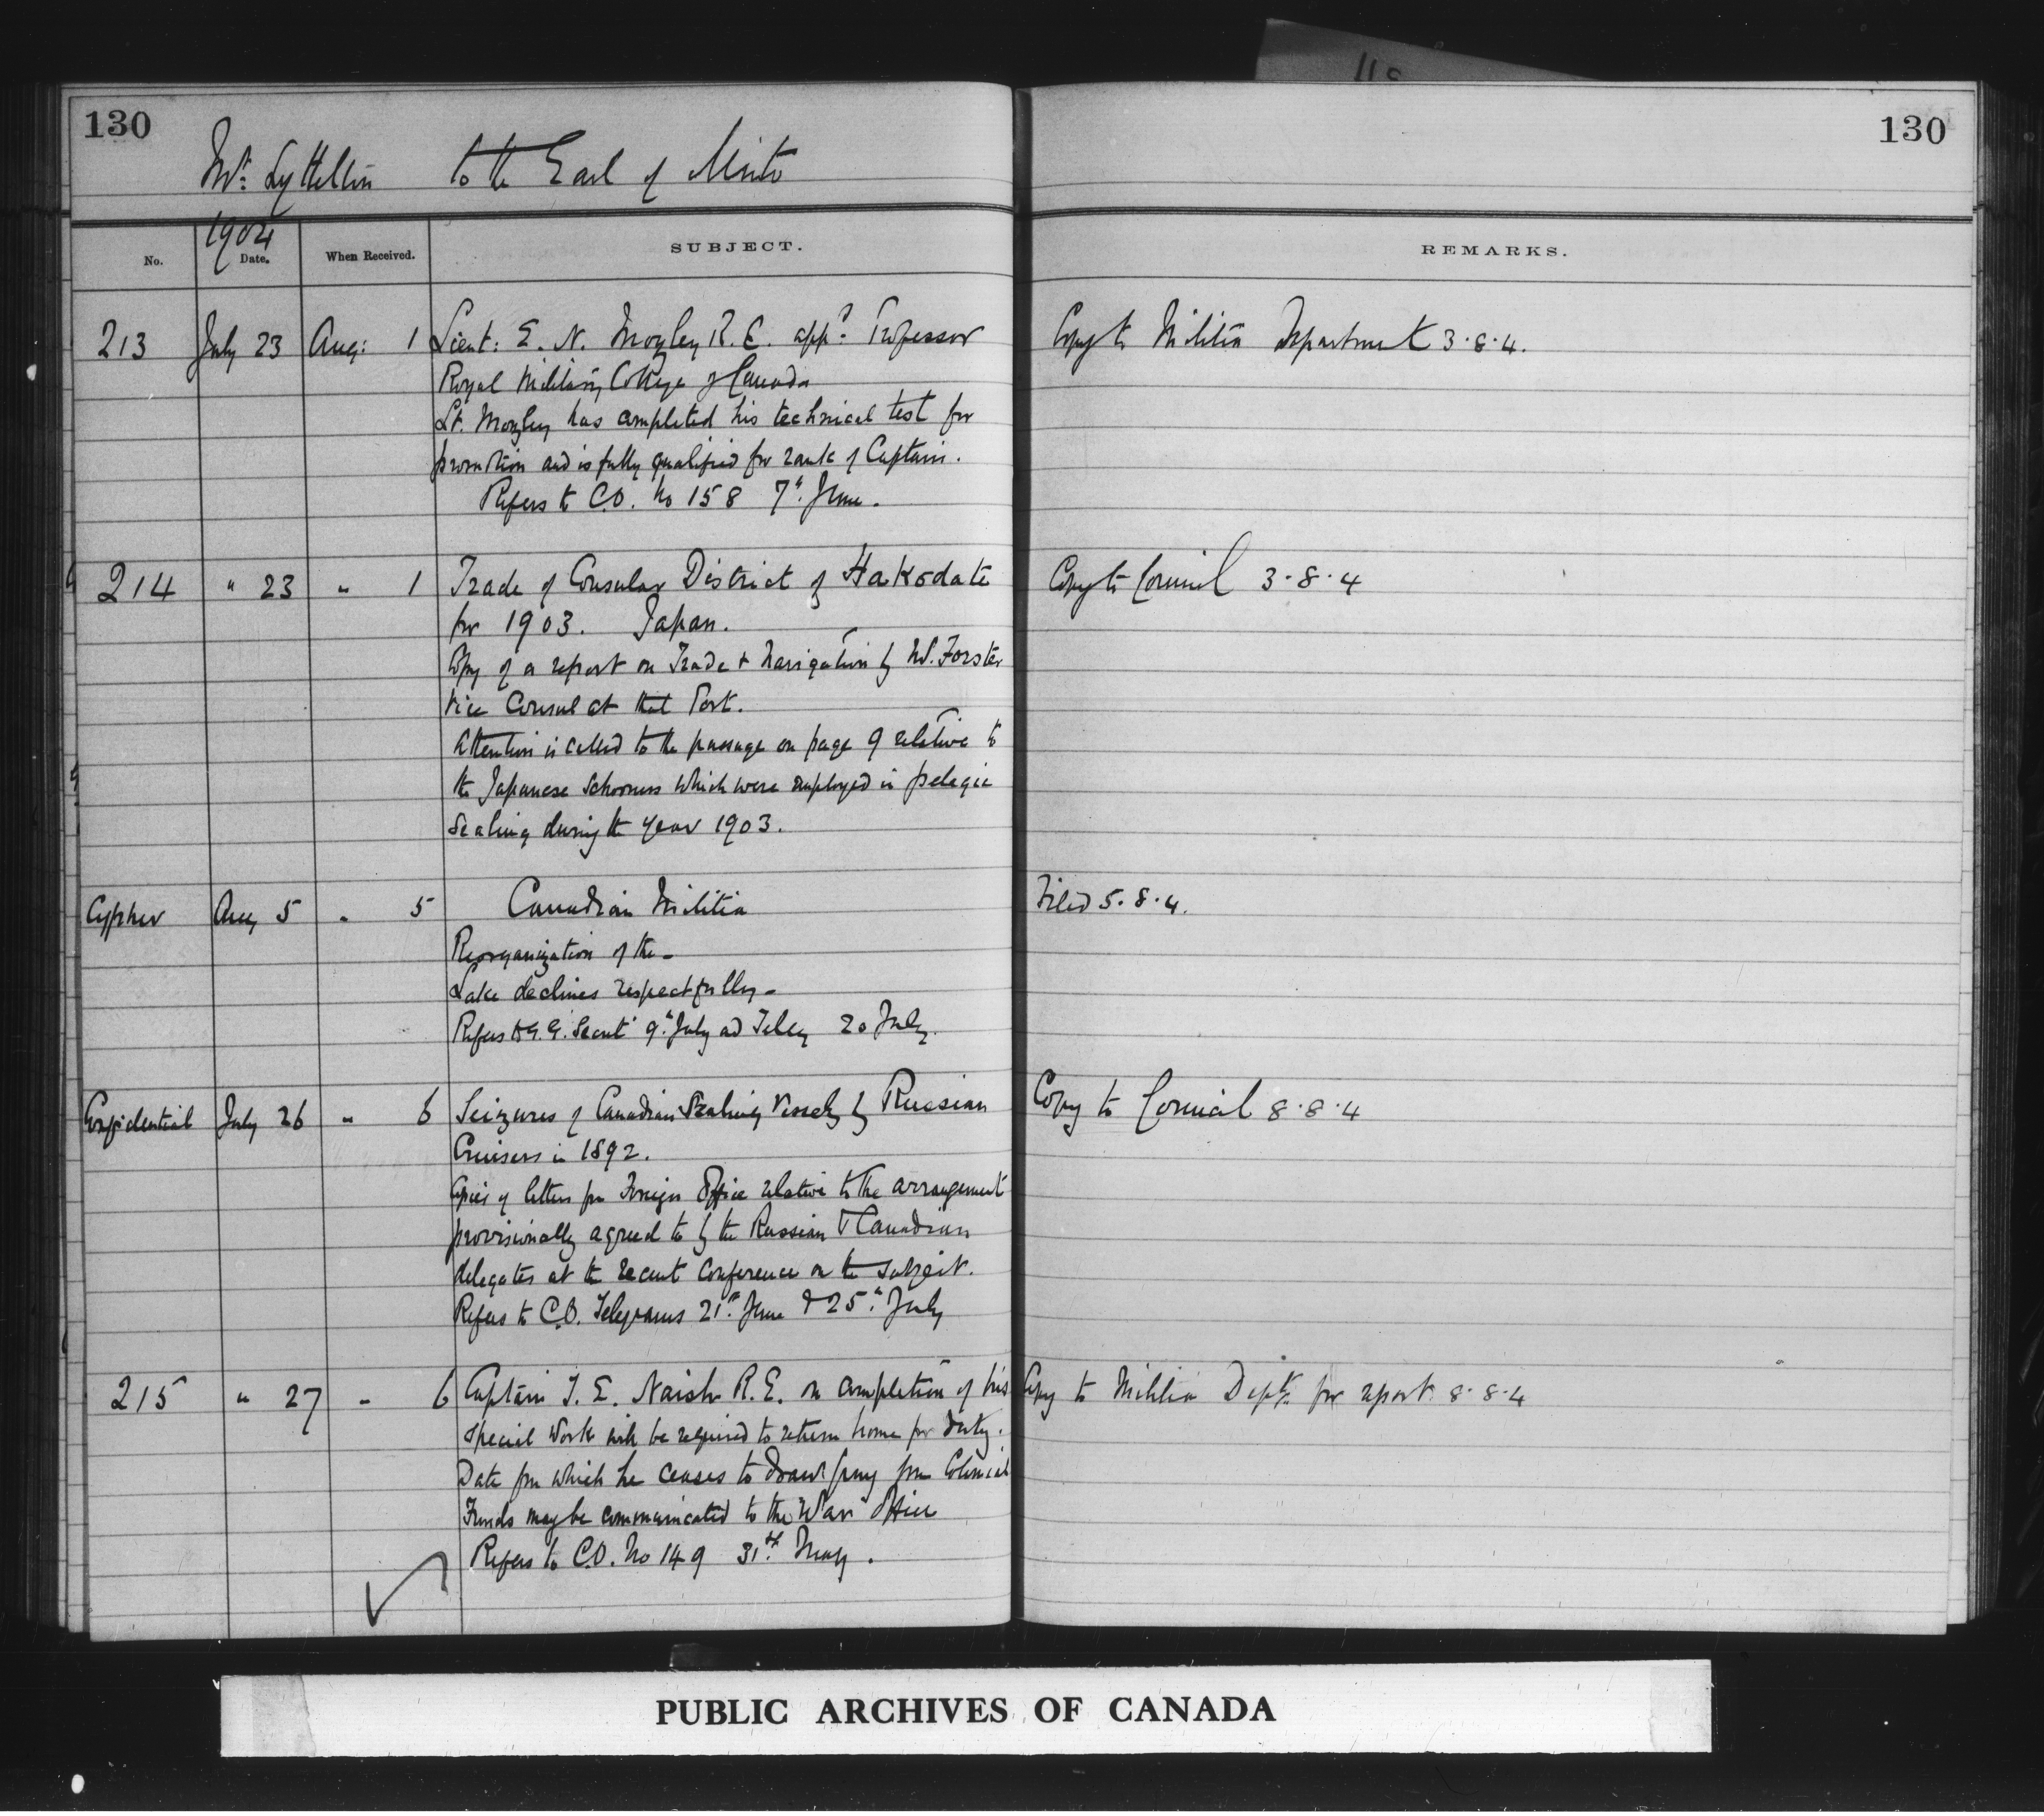 130
130
Mr. Lyttelton to the Earl of Minto
1904
No. Date. When Received. SUBJECT. REMARKS.
213 July 23 Aug: 1 Lieut: E. N. Mozley R.E. appd. Professor Copy to Militia Department 3.8.4.
Royal Military College of Canada
Lt. Mozley has completed his technical test for
promotion and is fully qualified for rank of Captain.
Refers to C.O. No 158 7th. June.
214 " 23 " 1 Trade of Consular District of Hakodate Copy to Council 3.8.4
for 1903. Japan.
Copy of a report on Trade & Navigation by Mr. Forster
Vice Consul at that Port.
Attention is called to the passage on page 9 relative to
the Japanese schooners which were employed in pelagic
Sealing during the year 1903.
Cypher Aug 5 " 5 Canadian Militia Filed 5.8.4.
Reorganization of the -
Lake declines respectfully -
Refers to G.G. Secret 9th July and Teleg 20 July.
Confidential July 26 " 6 Seizures of Canadian Sealing Vessels by Russian Copy to Council 8.8.4
Cruisers in 1892.
Copies of letters fm Foreign Office relative to the arrangement
provisionally agreed to by the Russian & Canadian
delegates at the recent conference on the subject.
Refers to C.O. Telegrams 21st. June & 25th. July
215 " 27 " 6 Captain T. E. Naish R.E. on completion of his Copy to Militia Dept. for report 8.8.4
special work will be required to return home for duty.
Date fm which he ceases to draw pay fm Colonial
Funds may be communicated to the War Office
Refers to C.O. No 149 31st. May.
PUBLIC ARCHIVES OF CANADA